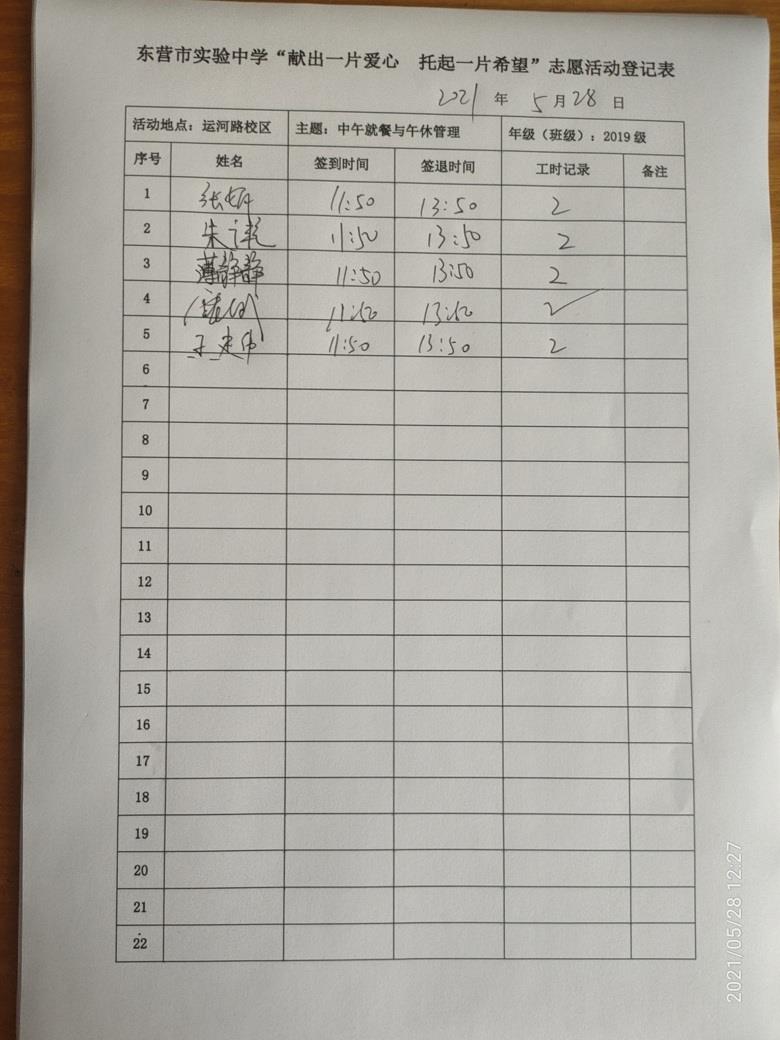 东营市实验中学“献出一片爱心 托起一片希望”志愿活动登记表
2021 年 5 月 28 日
活动地点：运河路校区 主题：中午就餐与午休管理 年级（班级）：2019 级
序号 姓名 签到时间 签退时间 工时记录 备注
1 张 11:50 13:50 2
2 朱 11:50 13:50 2
3 薄静静 11:50 13:50 2
4 11:50 13:50 2
5 11:50 13:50 2
6
7
8
9
10
11
12
13
14
15
16
17
18
19
20
21
22
2021/05/28 12:27